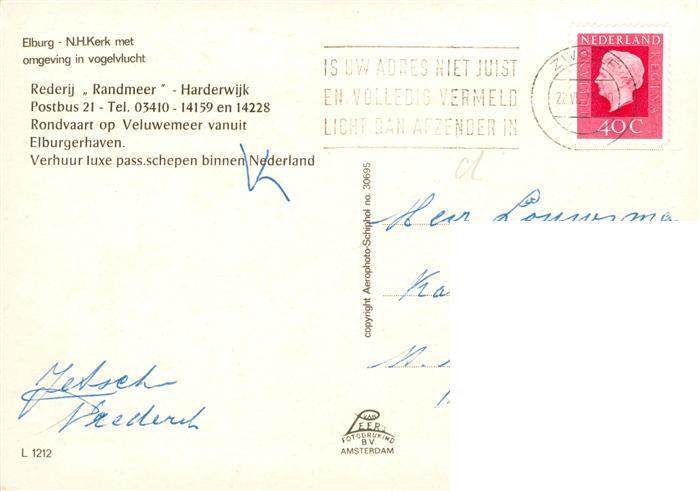 Elburg - N.H.Kerk met
omgeving in vogelvlucht
Rederij „ Randmeer " - Harderwijk
Postbus 21 - Tel. 03410 - 14159 en 14228
Rondvaart op Veluwemeer vanuit
Elburgerhaven.
Verhuur luxe pass.schepen binnen Nederland
IS UW ADRES NIET JUIST
EN VOLLEDIG VERMELD
LICHT DAN AFZENDER IN
NEDERLAND
JULIANA REGINA
40C
copyright Aerophoto-Schiphol no. 30695
Heer Louwsma
Ka
VAN
LEER'S
FOTODRUKIND
B.V.
AMSTERDAM
L 1212